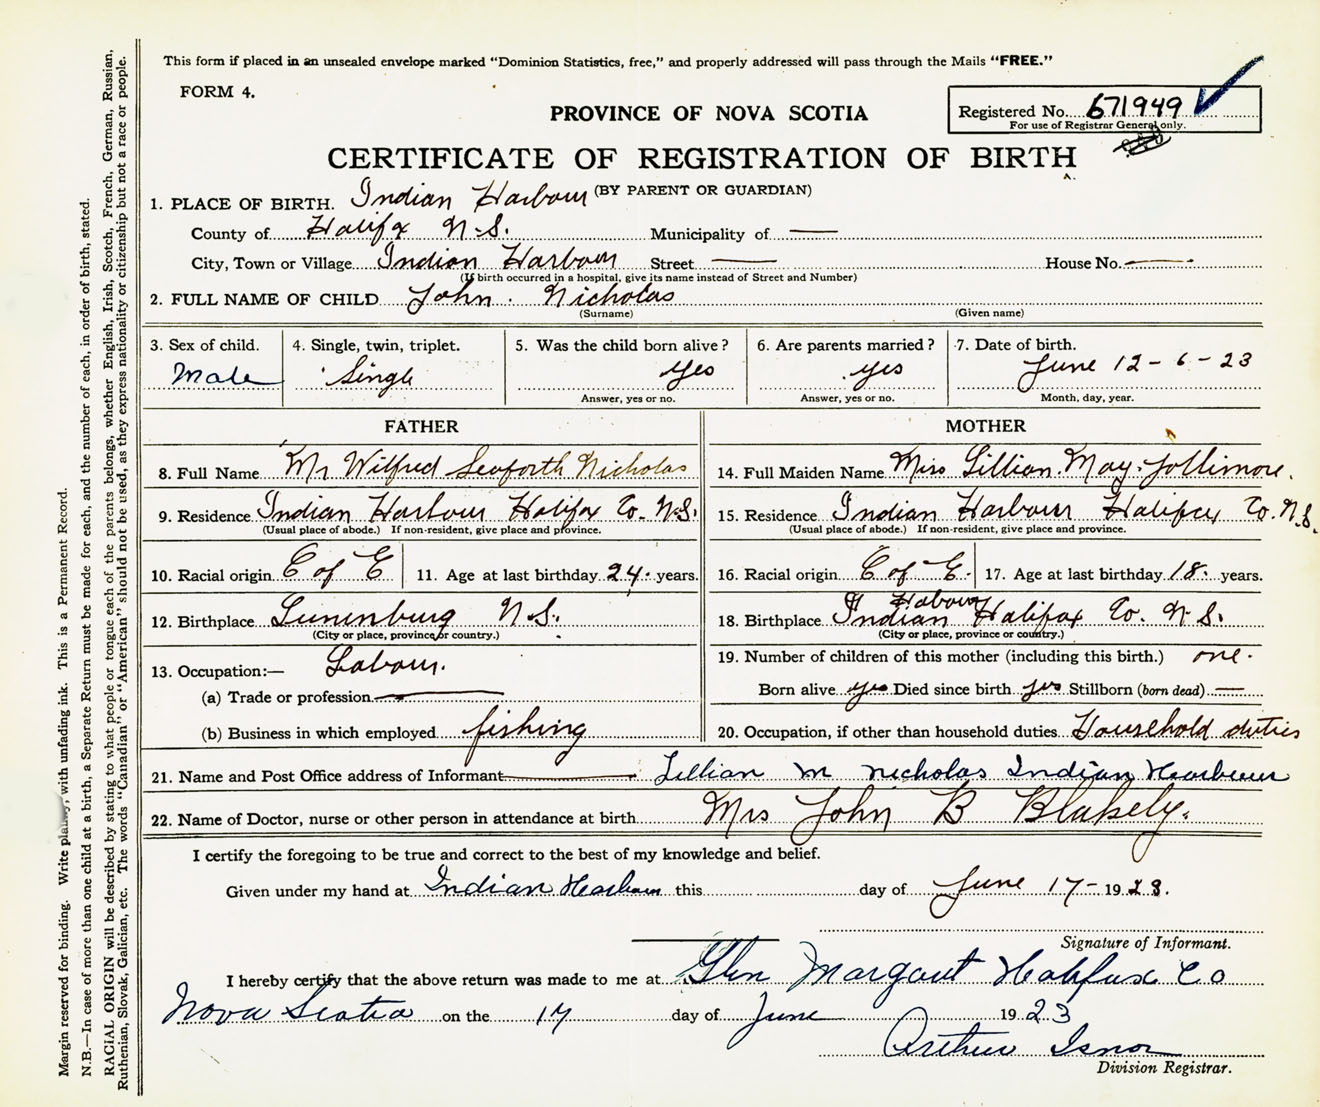 This form if placed in an unsealed envelope marked "Dominion Statistics, free," and properly addressed will pass through the Mails "FREE."
FORM 4.
PROVINCE OF NOVA SCOTIA
Registered No. 671949
For use of Registrar General only.
CERTIFICATE OF REGISTRATION OF BIRTH
(BY PARENT OR GUARDIAN)
1. PLACE OF BIRTH. Indian Harbour
County of Halifx N.S. Municipality of —
City, Town or Village Indian Harbour Street — House No. —
(If birth occurred in a hospital, give its name instead of Street and Number)
2. FULL NAME OF CHILD John. Nicholas
(Surname) (Given name)
3. Sex of child. 4. Single, twin, triplet. 5. Was the child born alive? 6. Are parents married? 7. Date of birth.
Male Single Yes yes June 12-6-23
Answer, yes or no. Answer, yes or no. Month, day, year.
FATHER MOTHER
8. Full Name Mr Wilfred Seaforth Nicholas 14. Full Maiden Name Miss Lillian. May. Jollimore.
9. Residence Indian Harbour Halifax Co. N.S. 15. Residence Indian Harbour Halifax Co. N.S.
(Usual place of abode.) If non-resident, give place and province. (Usual place of abode.) If non-resident, give place and province.
10. Racial origin C of E 11. Age at last birthday 24. years. 16. Racial origin C of E. 17. Age at last birthday 18. years.
12. Birthplace Lunenburg N.S. 18. Birthplace Indian Habour Halifax Co. N.S.
(City or place, province or country.) (City or place, province or country.)
13. Occupation:— Labour. 19. Number of children of this mother (including this birth.) one.
(a) Trade or profession — Born alive yes Died since birth yes Stillborn (born dead) —
(b) Business in which employed fishing 20. Occupation, if other than household duties Household duties
21. Name and Post Office address of Informant Lillian M Nicholas Indian Hearbour
22. Name of Doctor, nurse or other person in attendance at birth Mrs John B Blakely.
I certify the foregoing to be true and correct to the best of my knowledge and belief.
Given under my hand at Indian Hearbour this day of June 17- 1923.
Signature of Informant.
I hereby certify that the above return was made to me at Glen Margaret Halifax Co
Nova Scotia on the 17 day of June 1923
Arthur Isnor
Division Registrar.
Margin reserved for binding. Write plainly, with unfading ink. This is a Permanent Record.
N.B.—In case of more than one child at a birth, a Separate Return must be made for each, and the number of each, in order of birth, stated.
RACIAL ORIGIN will be described by stating to what people or tongue each of the parents belongs, whether English, Irish, Scotch, French, German, Russian,
Ruthenian, Slovak, Galician, etc. The words "Canadian" or "American" should not be used, as they express nationality or citizenship but not a race or people.